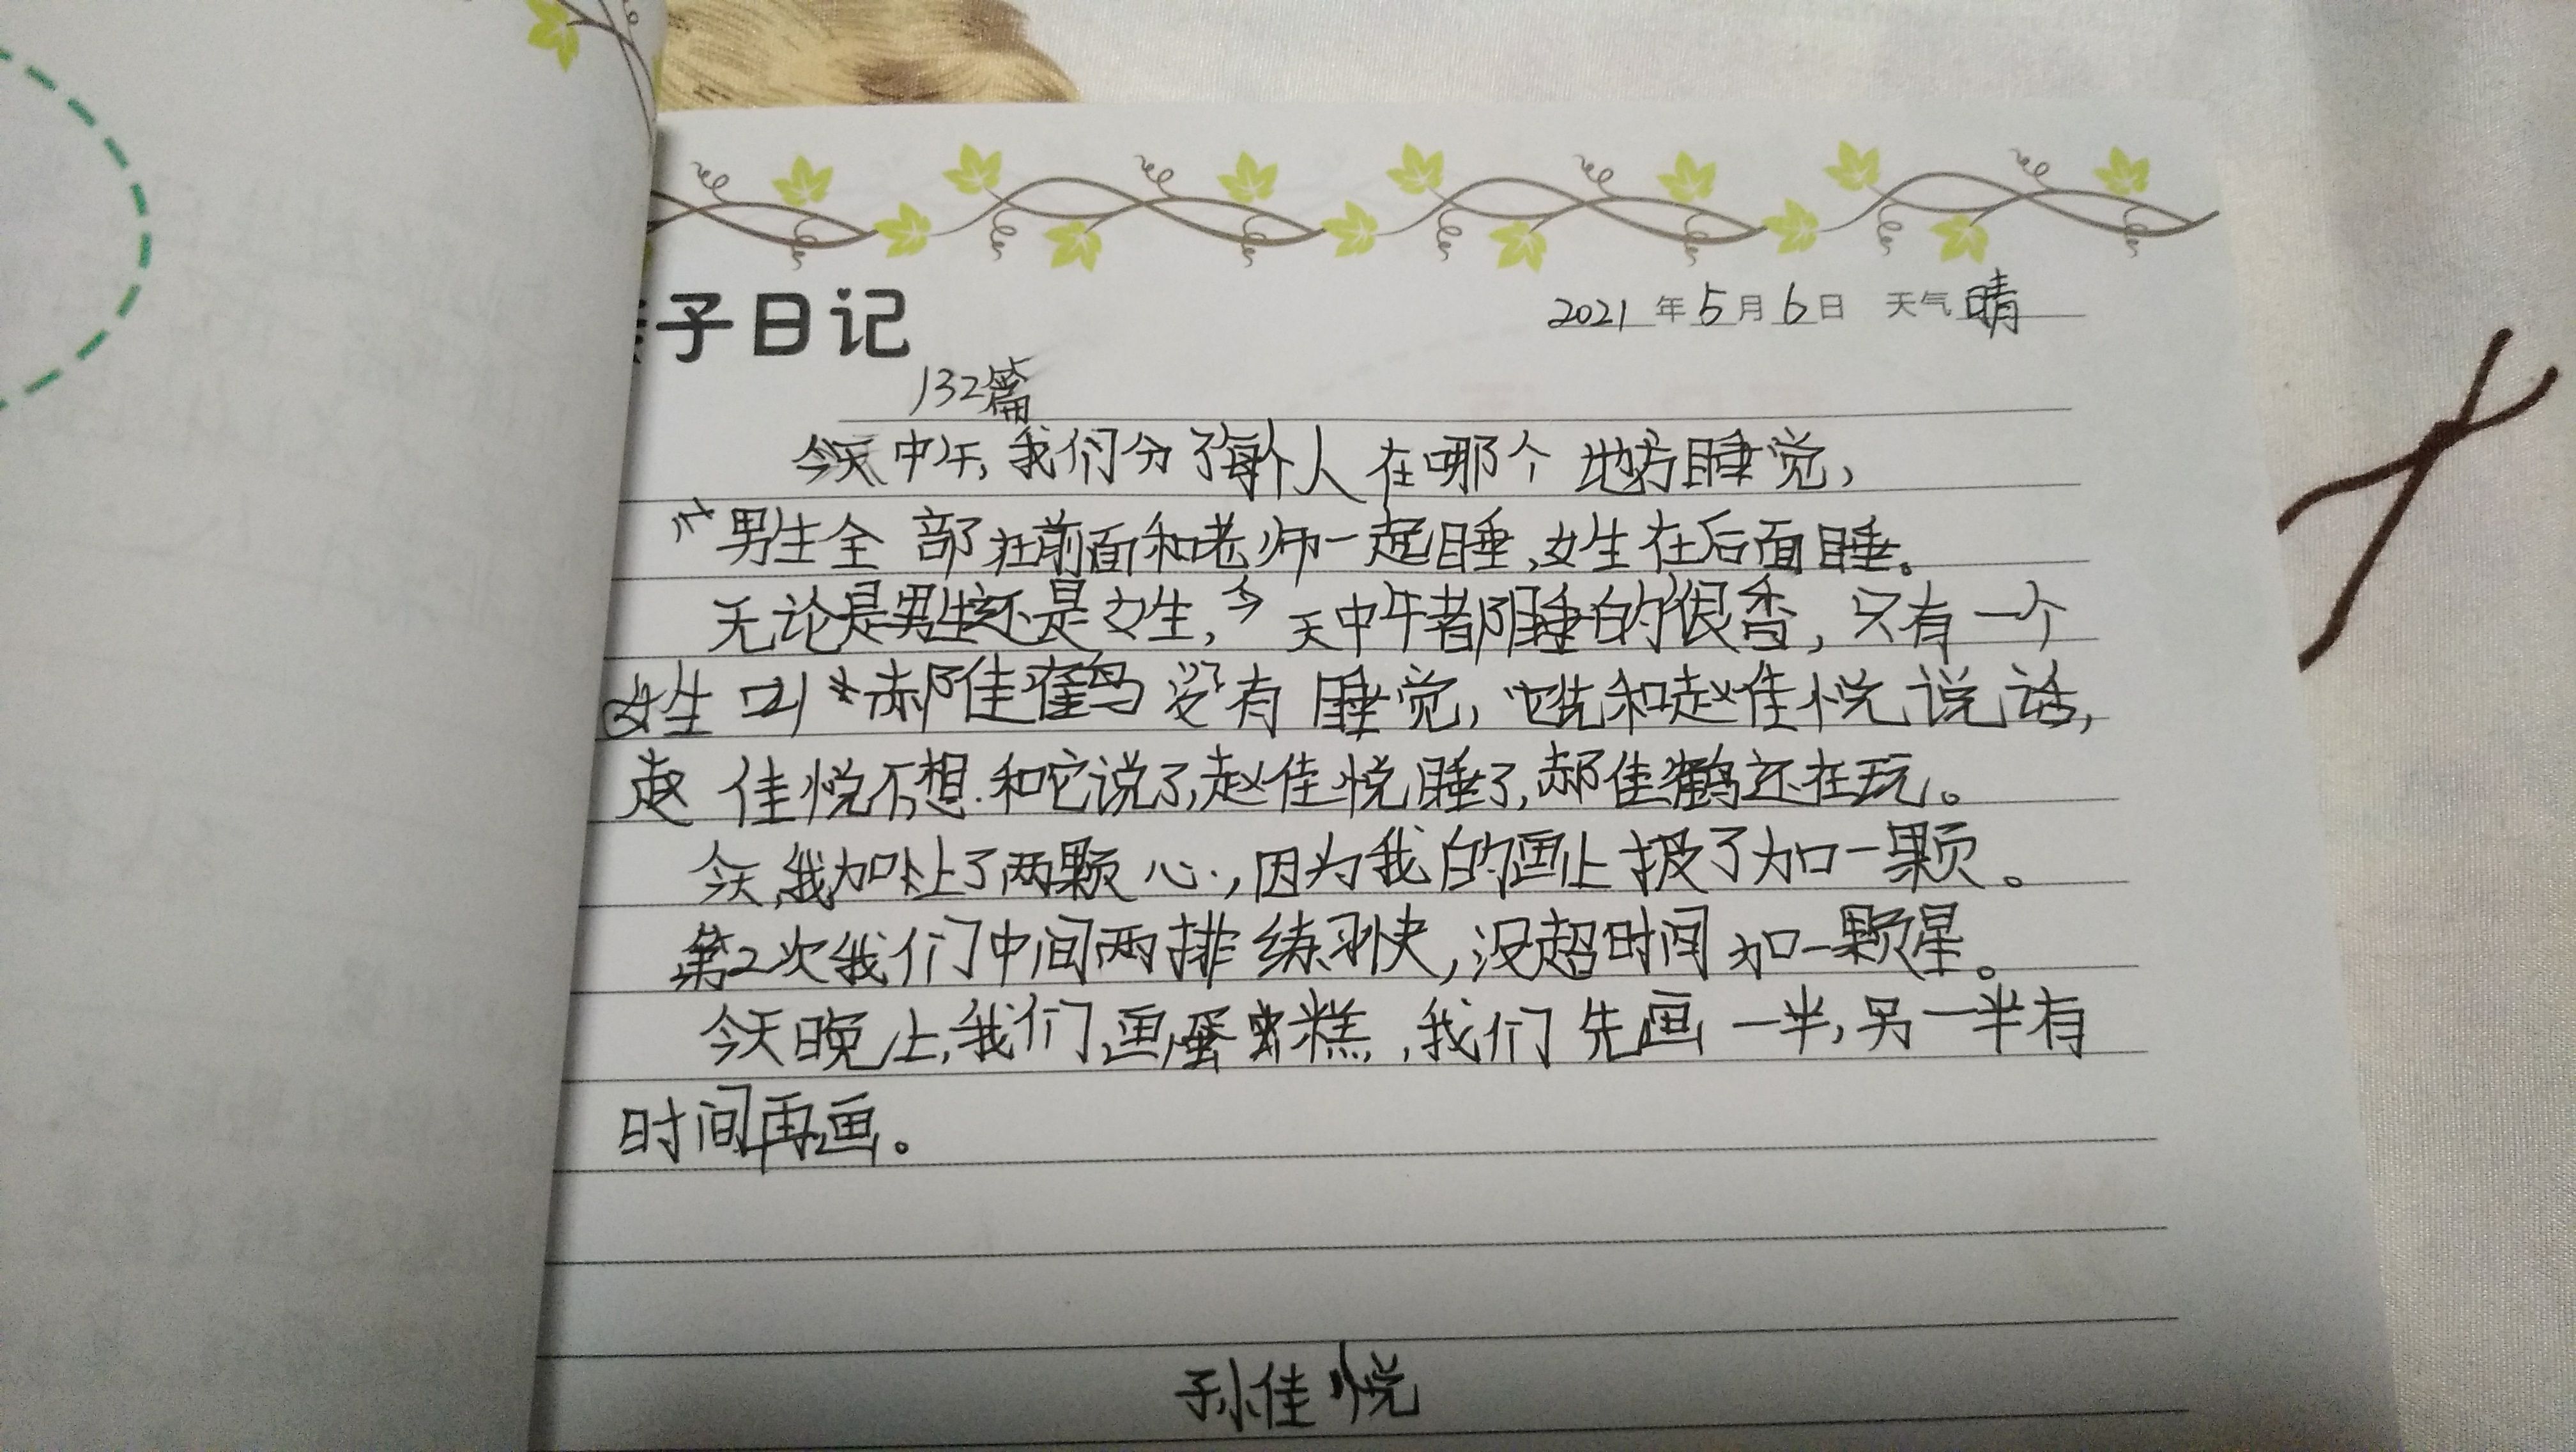 子日记
2021年5月6日 天气晴
132篇
今天中午,我们分了每个人在哪个地方睡觉,
男生全部在前面和老师一起睡,女生在后面睡。
无论是男生还是女生,今天中午都睡的很香,只有一个
女生叫郝佳鹤没有睡觉,它先和赵佳悦说话,
赵佳悦不想和它说了,赵佳悦睡了,郝佳鹤还在玩。
今天,我加上了两颗心,因为我的画上报了加一颗。
第2次我们中间两排练习快,没超时间加一颗星。
今天晚上,我们画蛋糕,我们先画一半,另一半有
时间再画。
孙佳悦